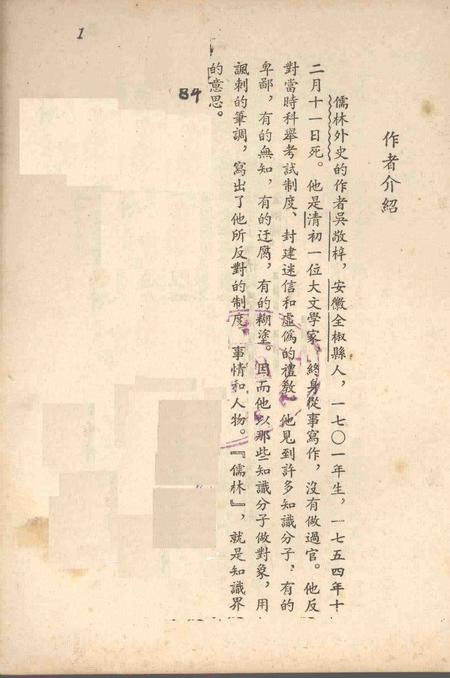 作者介紹
儒林外史的作者吳敬梓，安徽全椒縣人，一七〇一年生，一七五四年十
二月十一日死。他是清初一位大文學家，終身從事寫作，沒有做過官。他反
對當時科舉考試制度、封建迷信和虛偽的禮教。他見到許多知識分子，有的
卑鄙，有的無知，有的迂腐，有的糊塗。因而他以那些知識分子做對象，用
諷刺的筆調，寫出了他所反對的制度、事情和人物。『儒林』，就是知識界
的意思。
84
1